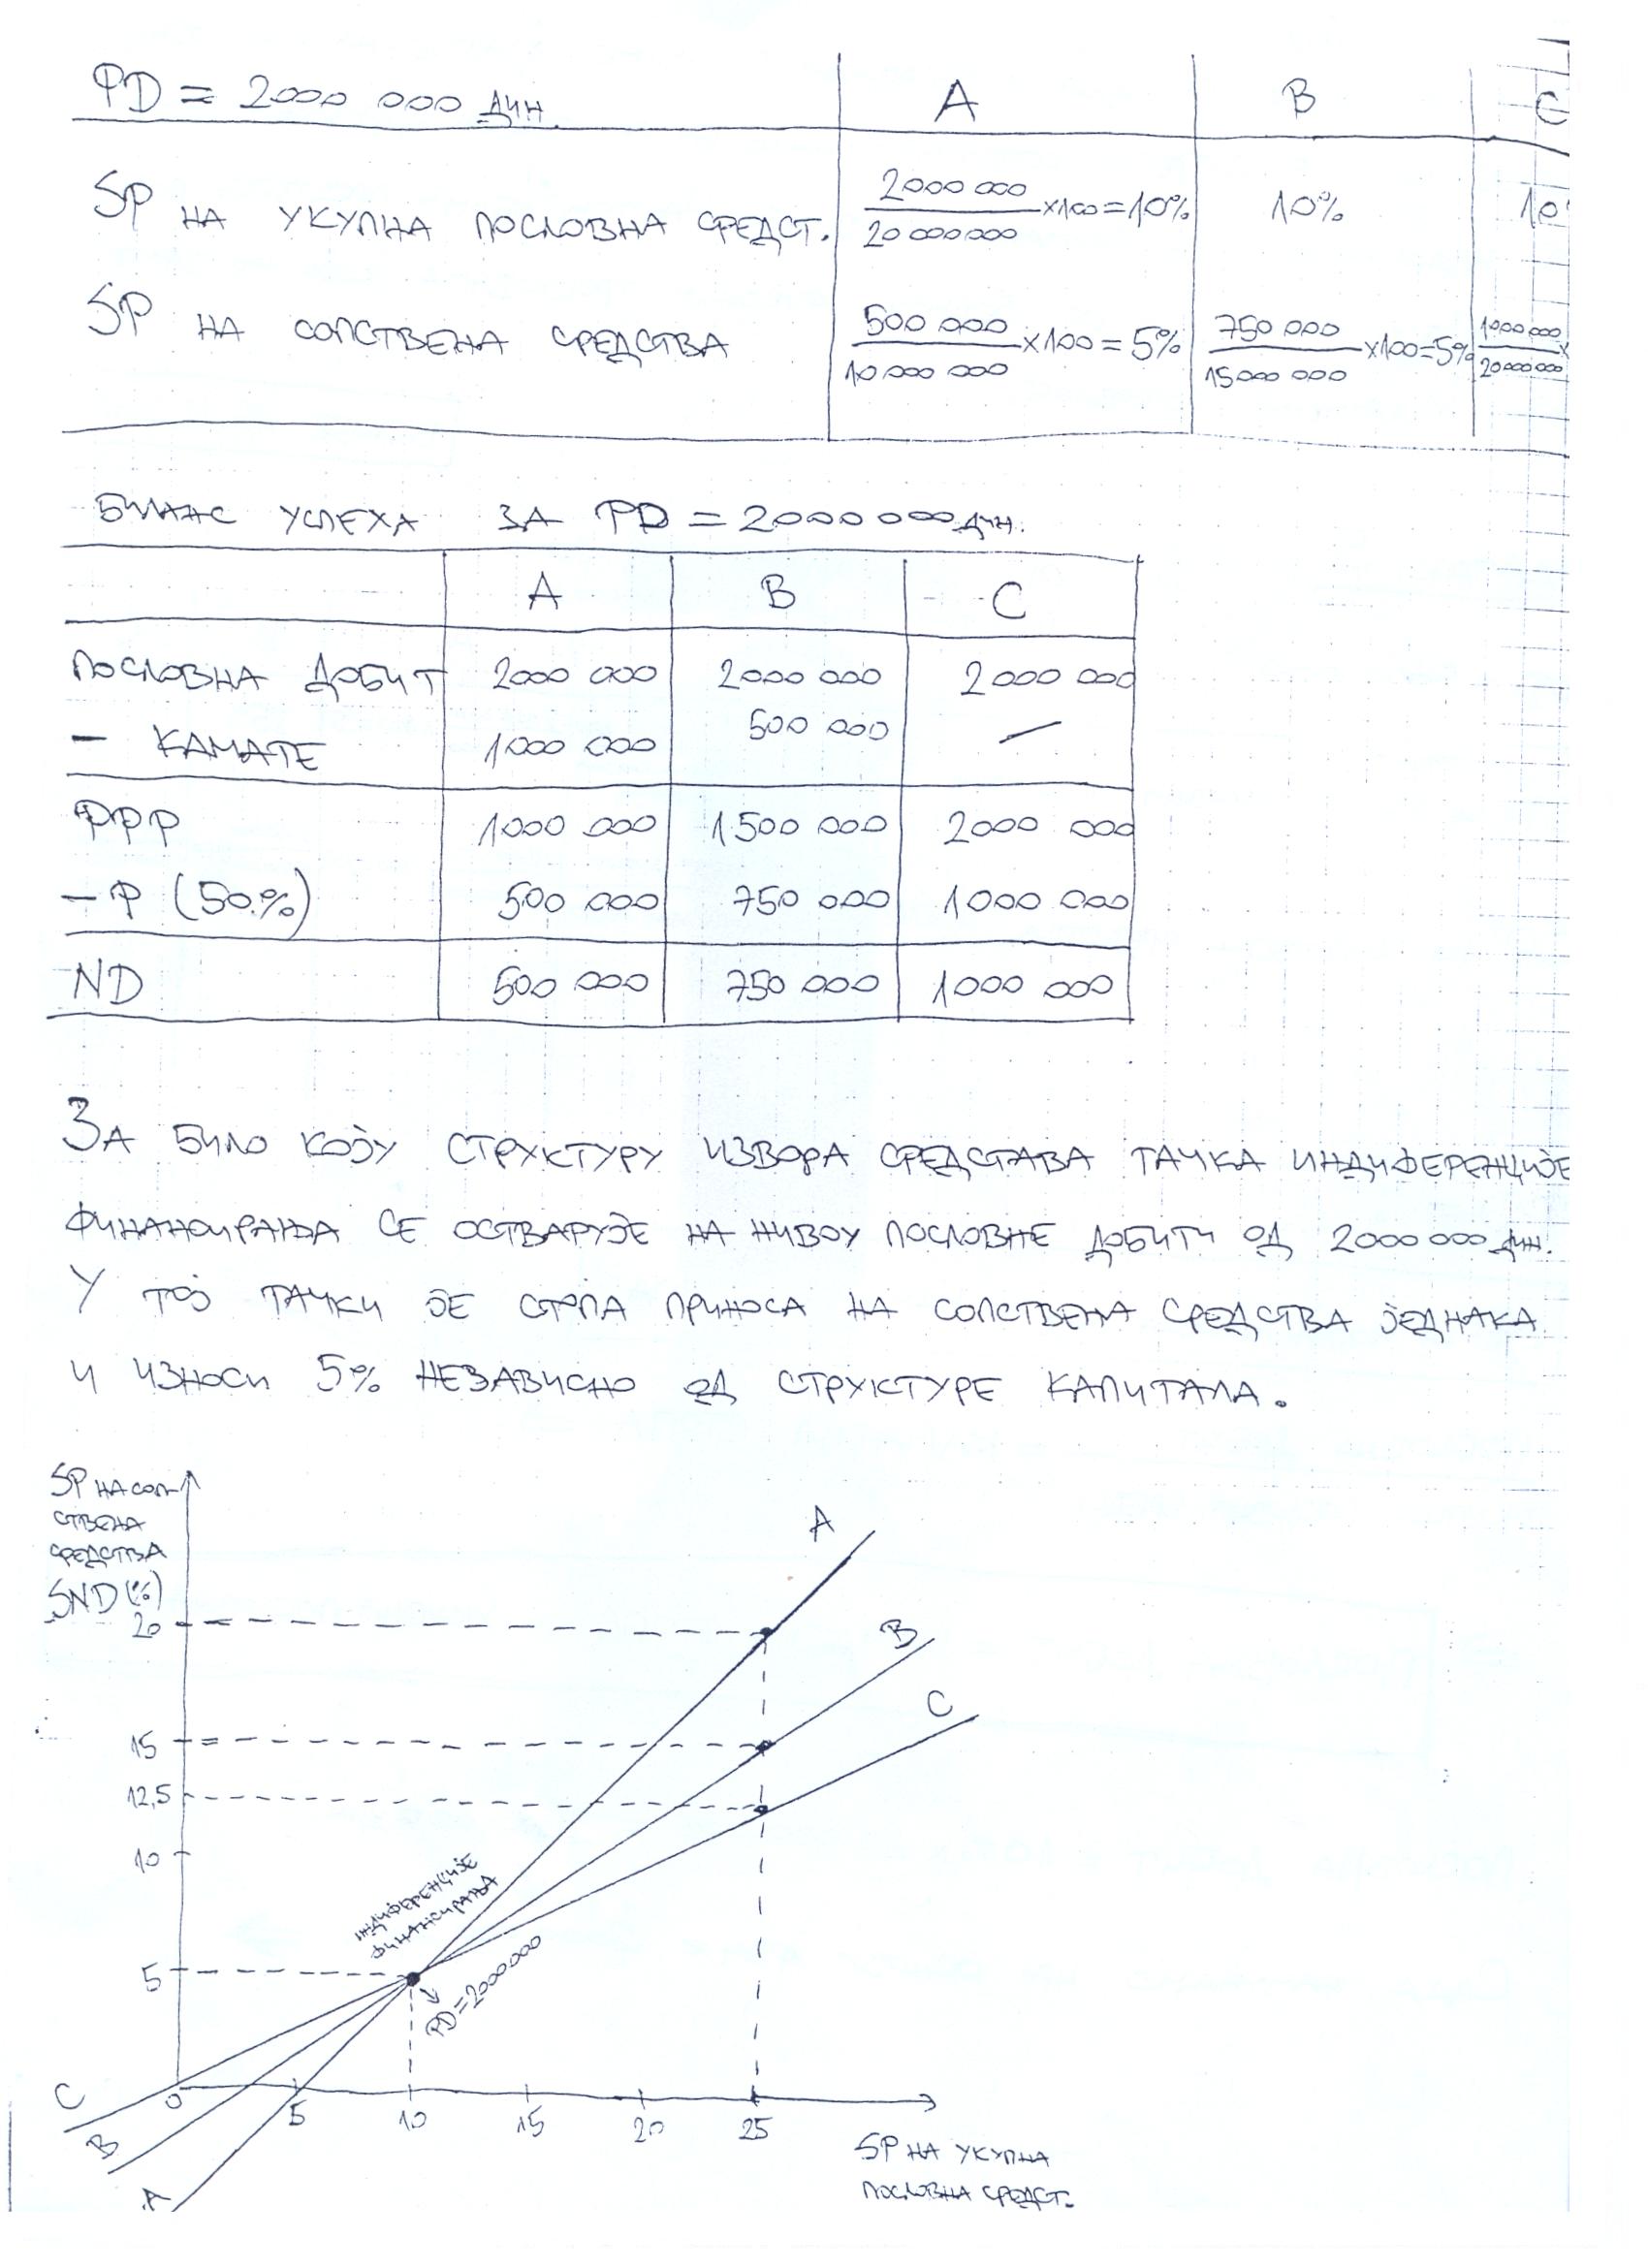 PD = 2000 000 дин. A B C
SP НА УКУПНА ПОСЛОВНА СРЕДСТ. 2000 000 / 20 000 000 x100=10% 10% 10
SP НА СОПСТВЕНА СРЕДСТВА 500 000 / 10 000 000 x100=5% 750 000 / 15 000 000 x100=5% 1000 000 / 20 000 000 x
БИЛАНС УСПЕХА ЗА PD = 2000 000 дин.
A B C
ПОСЛОВНА ДОБИТ 2000 000 2000 000 2000 000
- КАМАТЕ 1000 000 500 000 –
PPP 1000 000 1500 000 2000 000
- P (50%) 500 000 750 000 1000 000
ND 500 000 750 000 1000 000
ЗА БИЛО КОЈУ СТРУКТУРУ ИЗВОРА СРЕДСТАВА ТАЧКА ИНДИФЕРЕНЦИЈЕ
ФИНАНСИРАЊА СЕ ОСТВАРУЈЕ НА НИВОУ ПОСЛОВНЕ ДОБИТИ ОД 2000 000 дин.
У ТОЈ ТАЧКИ ЈЕ СТОПА ПРИНОСА НА СОПСТВЕНА СРЕДСТВА ЈЕДНАКА
И ИЗНОСИ 5% НЕЗАВИСНО ОД СТРУКТУРЕ КАПИТАЛА.
SP НА СОП-
СТВЕНА
СРЕДСТВА
SND (%)
A
20
B
C
15
12,5
10
ИНДИФЕРЕНЦИЈЕ
ФИНАНСИРАЊА
5
PD=2000 000
C
B
A
0 5 10 15 20 25
SP НА УКУПНА
ПОСЛОВНА СРЕДСТ.